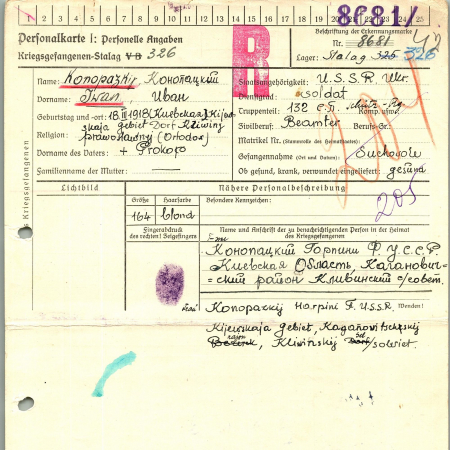 1 2 3 4 5 6 7 8 9 10 11 12 13 14 15 16 17 18 19 20 21 22 23 24 25
8681/
Personalkarte I: Personelle Angaben
Kriegsgefangenen-Stalag V B 326
R
Beschriftung der Erkennungsmarke
Nr. 8681
Lager: Stalag 325 326
Name: Konopazkij, Конопацкий
Vorname: Iwan, Иван
Geburtstag und -ort: 18 III 1918 (Kiewskaja) Kijew-
skaja gebiet Dorf Kliwin
Religion: prawoslawny (Ortodox)
Vorname des Vaters: + Prokofo
Familienname der Mutter: —
Staatsangehörigkeit: U.S.S.R. Ukr
Dienstgrad: soldat
Truppenteil: 132 с.п. Komp. usw.
Zivilberuf: Beamter Berufs-Gr.
Matrikel Nr. (Stammrolle des Heimatstaates)
Gefangennahme (Ort und Datum)
Ob gesund, krank, verwundet eingeliefert: gesund
205
Kriegsgefangenen
Lichtbild
Nähere Personalbeschreibung
Größe Haarfarbe Besondere Kennzeichen:
164 blond
Fingerabdruck
des rechten! Zeigefingers
Name und Anschrift der zu benachrichtigenden Person in der Heimat
des Kriegsgefangenen
Конопацкий Горпини Ф УССР.
Киевская Область, Каганович-
ский район Кливинский с/совет.
Frau Konopazkij Harpini F. U.S.S.R. Wenden!
Kijewskaja gebiet, Kaganowitschskij
rajon
Bezirk, Kliwinskij Dorf/sowiet.